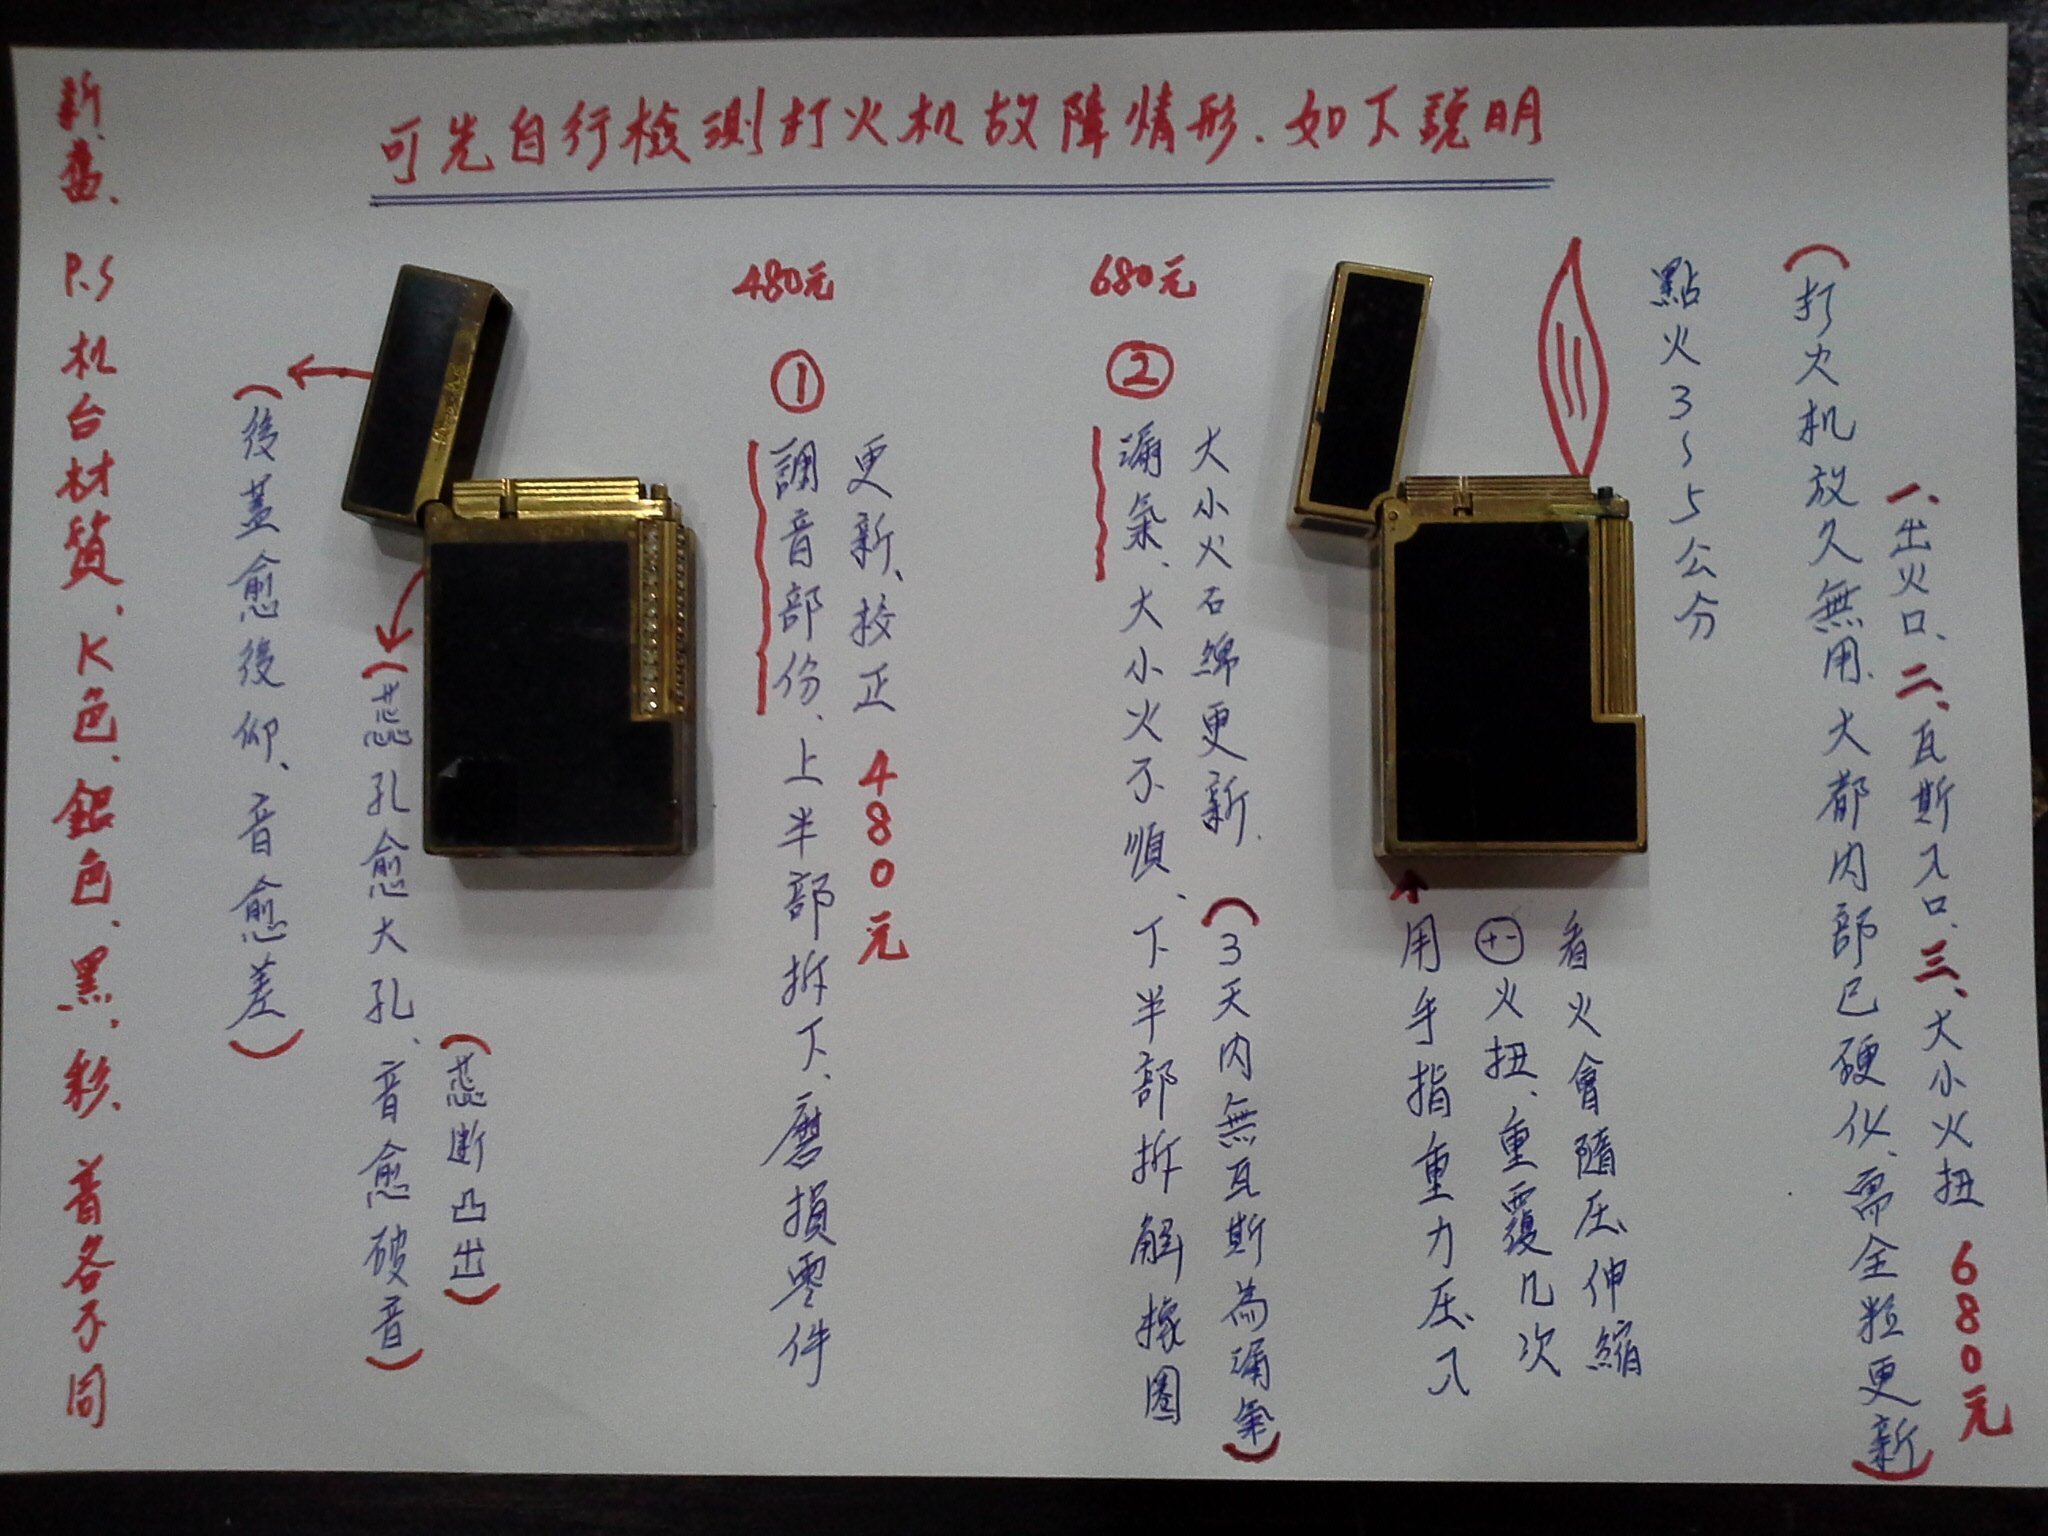 可先自行檢測打火机故障情形、如下說明
(打火机放久無用、大都內部已硬化、需全粒更新)
一、出火口、二、瓦斯入口、三、大小火扭 680元
點火3~5公分
看火會隨压伸縮
⊕⊖火扭、重覆几次
用手指重力压入
680元
②
大小火石綿更新、(3天內無瓦斯為漏氣)
漏氣、大小火不順、下半部拆解橡圈
480元
①
更新、校正 480元
調音部份、上半部拆下、磨損零件
(蕊断凸出)
(蕊孔愈大孔、音愈破音)
(後蓋愈後仰、音愈差)
新、舊、P.S 机台材質、K色、銀色、黑、彩、音各不同